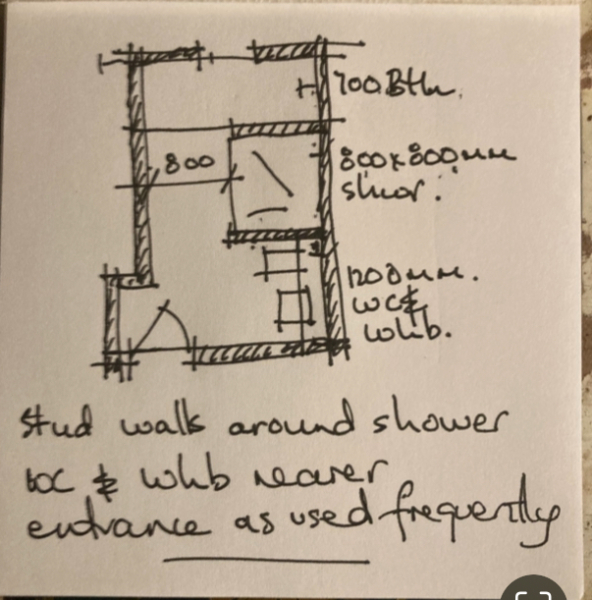 700 Bth.
800
800x800mm
shwr.
1200mm.
WC &
whb.
stud walls around shower
WC & whb nearer
entrance as used frequently